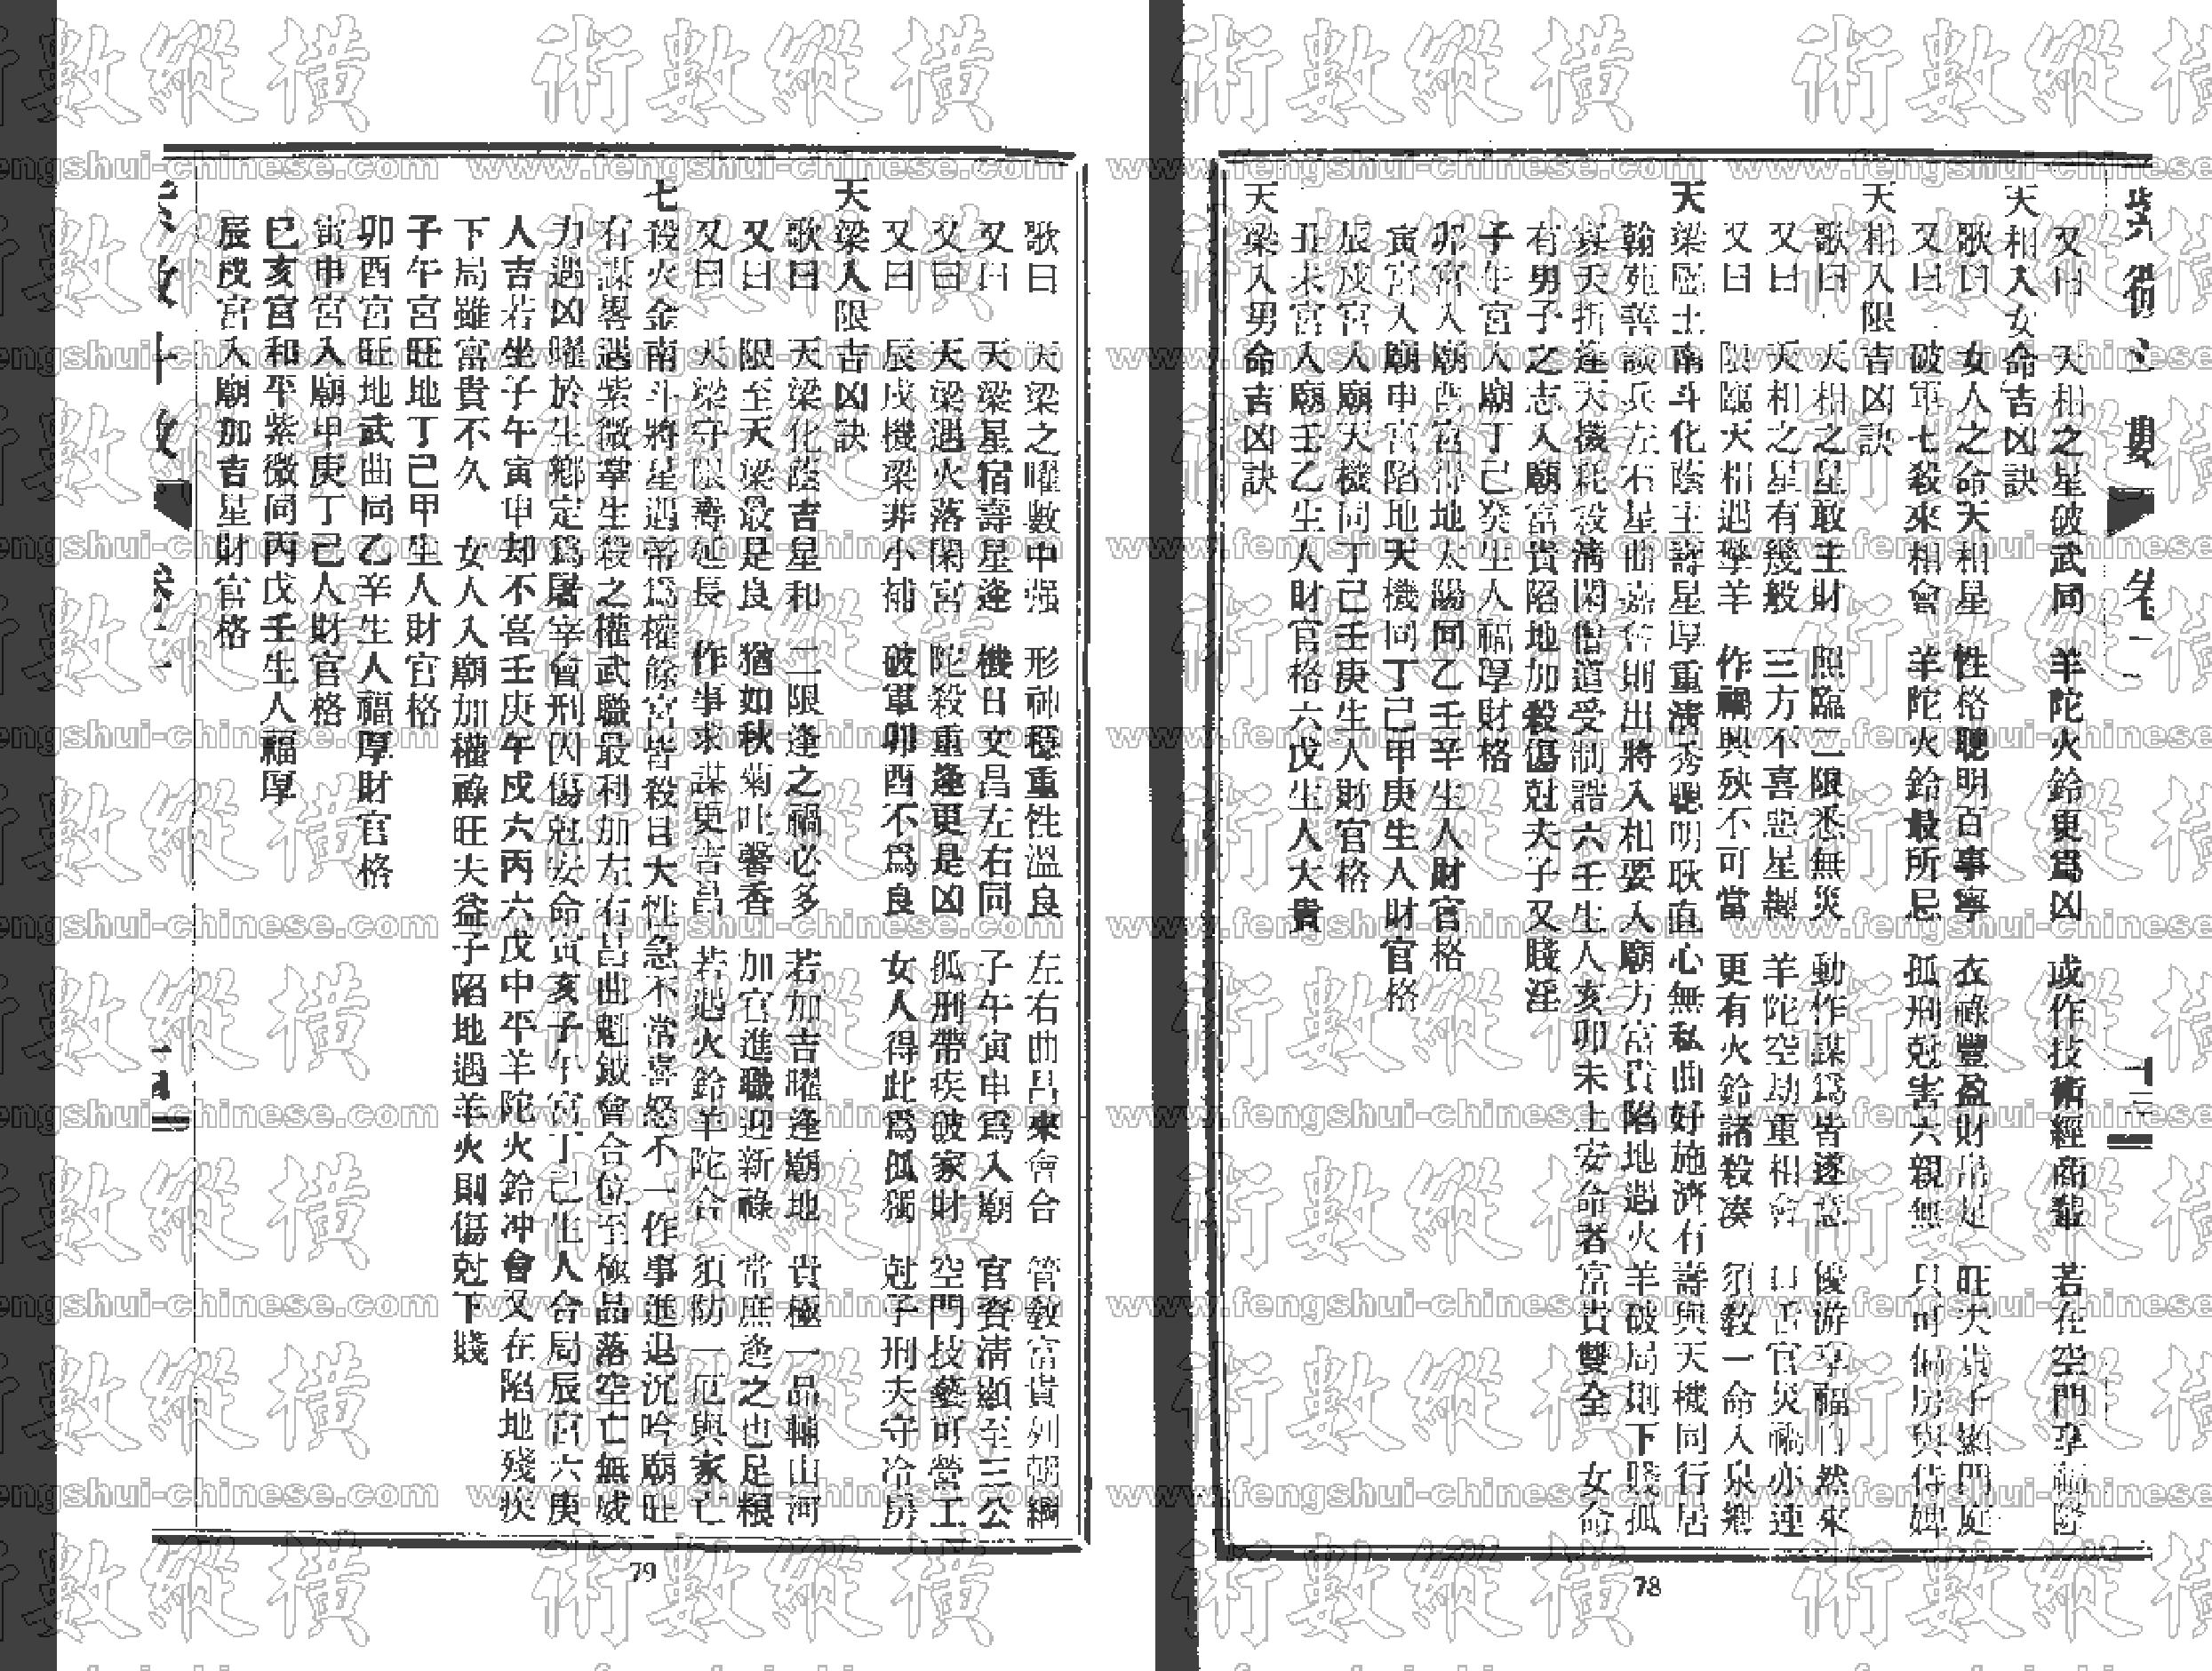 又曰 天相之星破武同 羊陀火鈴更為凶 或作技術經商輩 若在空門享福隆
天相入女命吉凶訣
歌曰 女人之命天相星 性格聰明百事寧 衣祿豐盈財帛足 旺夫貴子顯門庭
又曰 破軍七殺來相會 羊陀火鈴最所忌 孤刑尅害六親無 只可偏房與侍婢
天相入限吉凶訣
歌曰 天相之星敢主財 照臨二限悉無災 動作謀為皆遂意 優游享福自然來
又曰 天相之星有幾般 三方不喜惡星纏 羊陀空劫重相會 口舌官災禍亦連
又曰 限臨天相遇擎羊 作禍興殃不可當 更有火鈴諸殺湊 須教一命入泉鄉
天梁屬土南斗化蔭主壽星厚重清秀聰明耿直心無私曲好施濟有壽與天機同行居
翰苑善談兵左右昌曲嘉會則出將入相要入廟方富貴陷地遇火羊破局則下賤孤
寡夭折逢天機耗殺清閑僧道受制誥六壬生人亥卯未上安命者富貴雙全 女命
有男子之志入廟富貴陷地加殺傷尅夫子又賤淫
子午宮入廟丁己癸生人福厚財格
卯宮入廟酉宮得地太陽同乙壬辛生人財官格
寅宮入廟申宮陷地天機同丁己甲庚生人財官格
辰戌宮入廟天機同丁己壬庚生人財官格
丑未宮入廟壬乙生人財官格六戊生人大貴
天梁入男命吉凶訣
78
歌曰 天梁之曜數中強 形神穩重性溫良 左右曲昌來會合 管教富貴列朝綱
又曰 天梁星宿壽星逢 機日文昌左右同 子午寅申為入廟 官資清顯至三公
又曰 天梁遇火落閑宮 陀殺重逢更是凶 孤刑帶疾破家財 空門技藝可營工
又曰 辰戌機梁非小補 破軍卯酉不為良 女人得此為孤獨 尅子刑夫守冷房
天梁入限吉凶訣
歌曰 天梁化蔭吉星和 二限逢之福必多 若加吉曜逢廟地 貴極一品輔山河
又曰 限至天梁最是良 猶如秋菊吐馨香 加官進職迎新祿 常庶逢之也足糧
又曰 天梁守限壽延長 作事求謀更吉昌 若遇火鈴羊陀合 須防一厄與家亡
七殺火金南斗將星遇帝為權餘宮皆殺目大性急不常喜怒不一作事進退沉吟廟旺
有謀畧遇紫微掌生殺之權武職最利加左右昌曲魁鉞會合位至極品落空亡無威
力遇凶曜於生鄉定為屠宰會刑囚傷尅安命寅亥子午宮丁己生人合局辰宮六庚
人吉若坐子午寅申却不喜壬庚午戌六丙六戊中平羊陀火鈴冲會又在陷地殘疾
下局雖富貴不久 女人入廟加權祿旺夫益子陷地遇羊火則傷尅下賤
子午宮旺地丁己甲生人財官格
卯酉宮旺地武曲同乙辛生人福厚財官格
寅申宮入廟甲庚丁己人財官格
巳亥宮和平紫微同丙戊壬生人福厚
辰戌宮入廟加吉星財官格
79
術數縱橫
www.fengshui-chinese.com